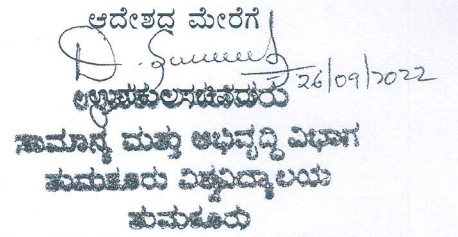 ಆದೇಶದ ಮೇರೆಗೆ
26/09/2022
ಸಾಮಾನ್ಯ ಮತ್ತು ಅಭಿವೃದ್ಧಿ ವಿಭಾಗ
ತುಮಕೂರು ವಿಶ್ವವಿದ್ಯಾಲಯ
ತುಮಕೂರು